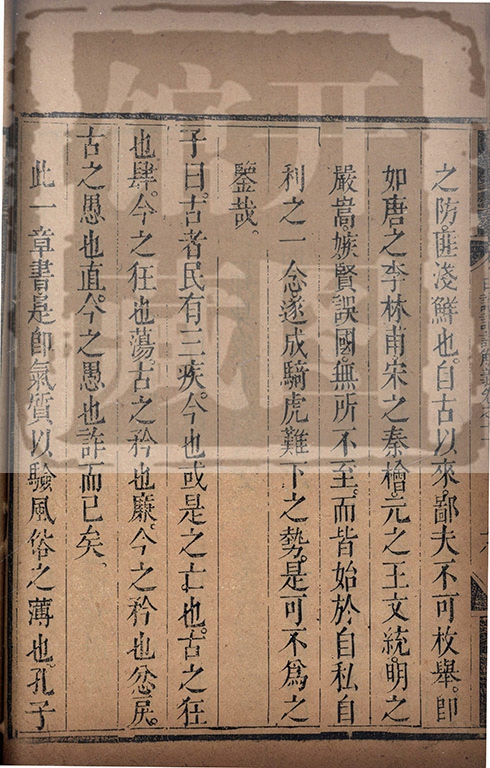 之防。匪淺鮮也。自古以來。鄙夫不可枚舉。即
如唐之李林甫。宋之秦檜。元之王文統。明之
嚴嵩。嫉賢誤國。無所不至。而皆始於自私自
利之一念。遂成騎虎難下之勢。是可不爲之
鑒哉。
子曰。古者民有三疾。今也或是之亡也。古之狂
也肆。今之狂也蕩。古之矜也廉。今之矜也忿戾。
古之愚也直。今之愚也詐而已矣、
此一章書。是即氣質以驗風俗之薄也。孔子